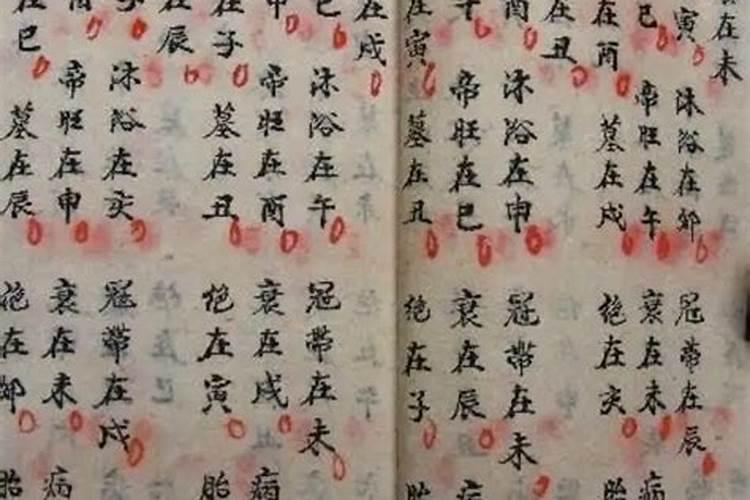 在未
寅
巳
在酉
在丑
酉
在寅
沐浴在卯
帝旺在午
墓在戌
沐浴在申
帝旺在巳
墓在丑
冠帶在辰
衰在未
绝在亥
冠帶在未
衰在辰
绝在子
病
胎
病
胎
在戌
巳
申
在子
在辰
在巳
沐浴在午
帝旺在酉
墓在丑
沐浴在亥
帝旺在申
墓在辰
冠帶在未
衰在戌
绝在寅
冠帶在戌
衰在未
绝在卯
病
胎
病
胎